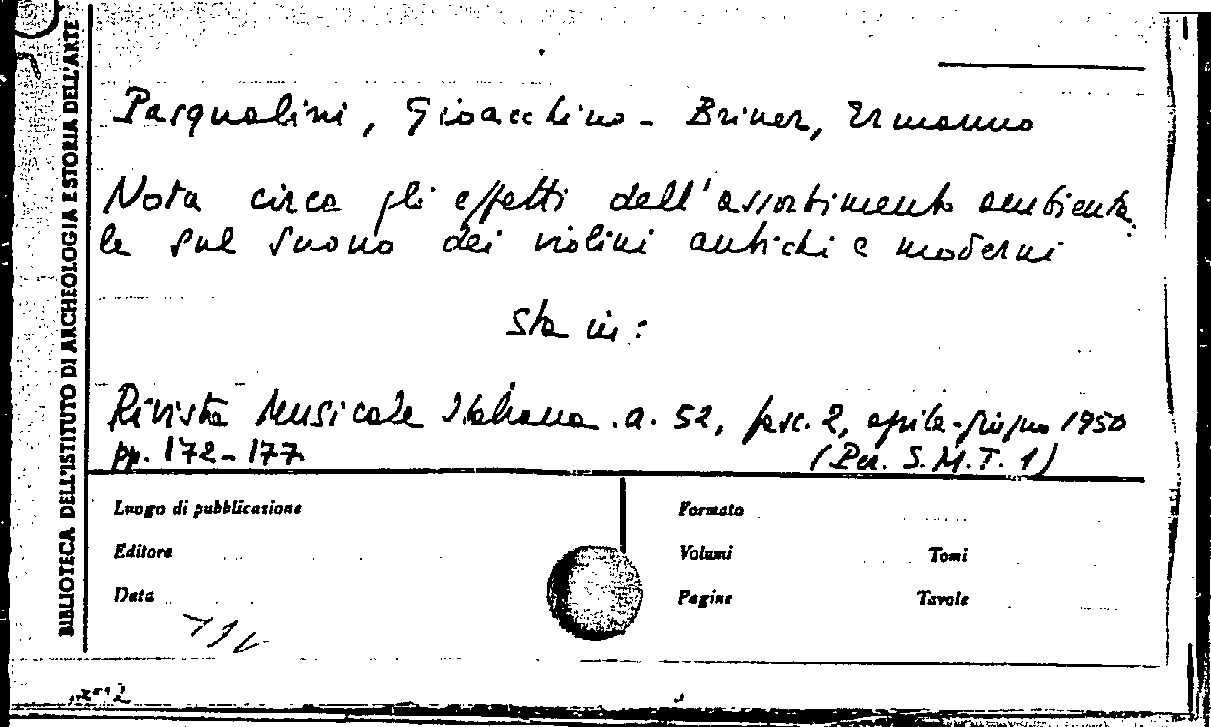 BIBLIOTECA DELL'ISTITUTO DI ARCHEOLOGIA E STORIA DELL'ARTE
Pasqualini, Gioacchino - Briner, Ermanno
Nota circa gli effetti dell'assortimento ambienta-
le sul suono dei violini antichi e moderni
Sta in:
Rivista Musicale Italiana. a. 52, fasc. 2, aprile-giugno 1950
pp. 172-177 (Per. S.M.T. 1)
Luogo di pubblicazione
Formato
Editore
Volumi Tomi
Data
Pagine Tavole